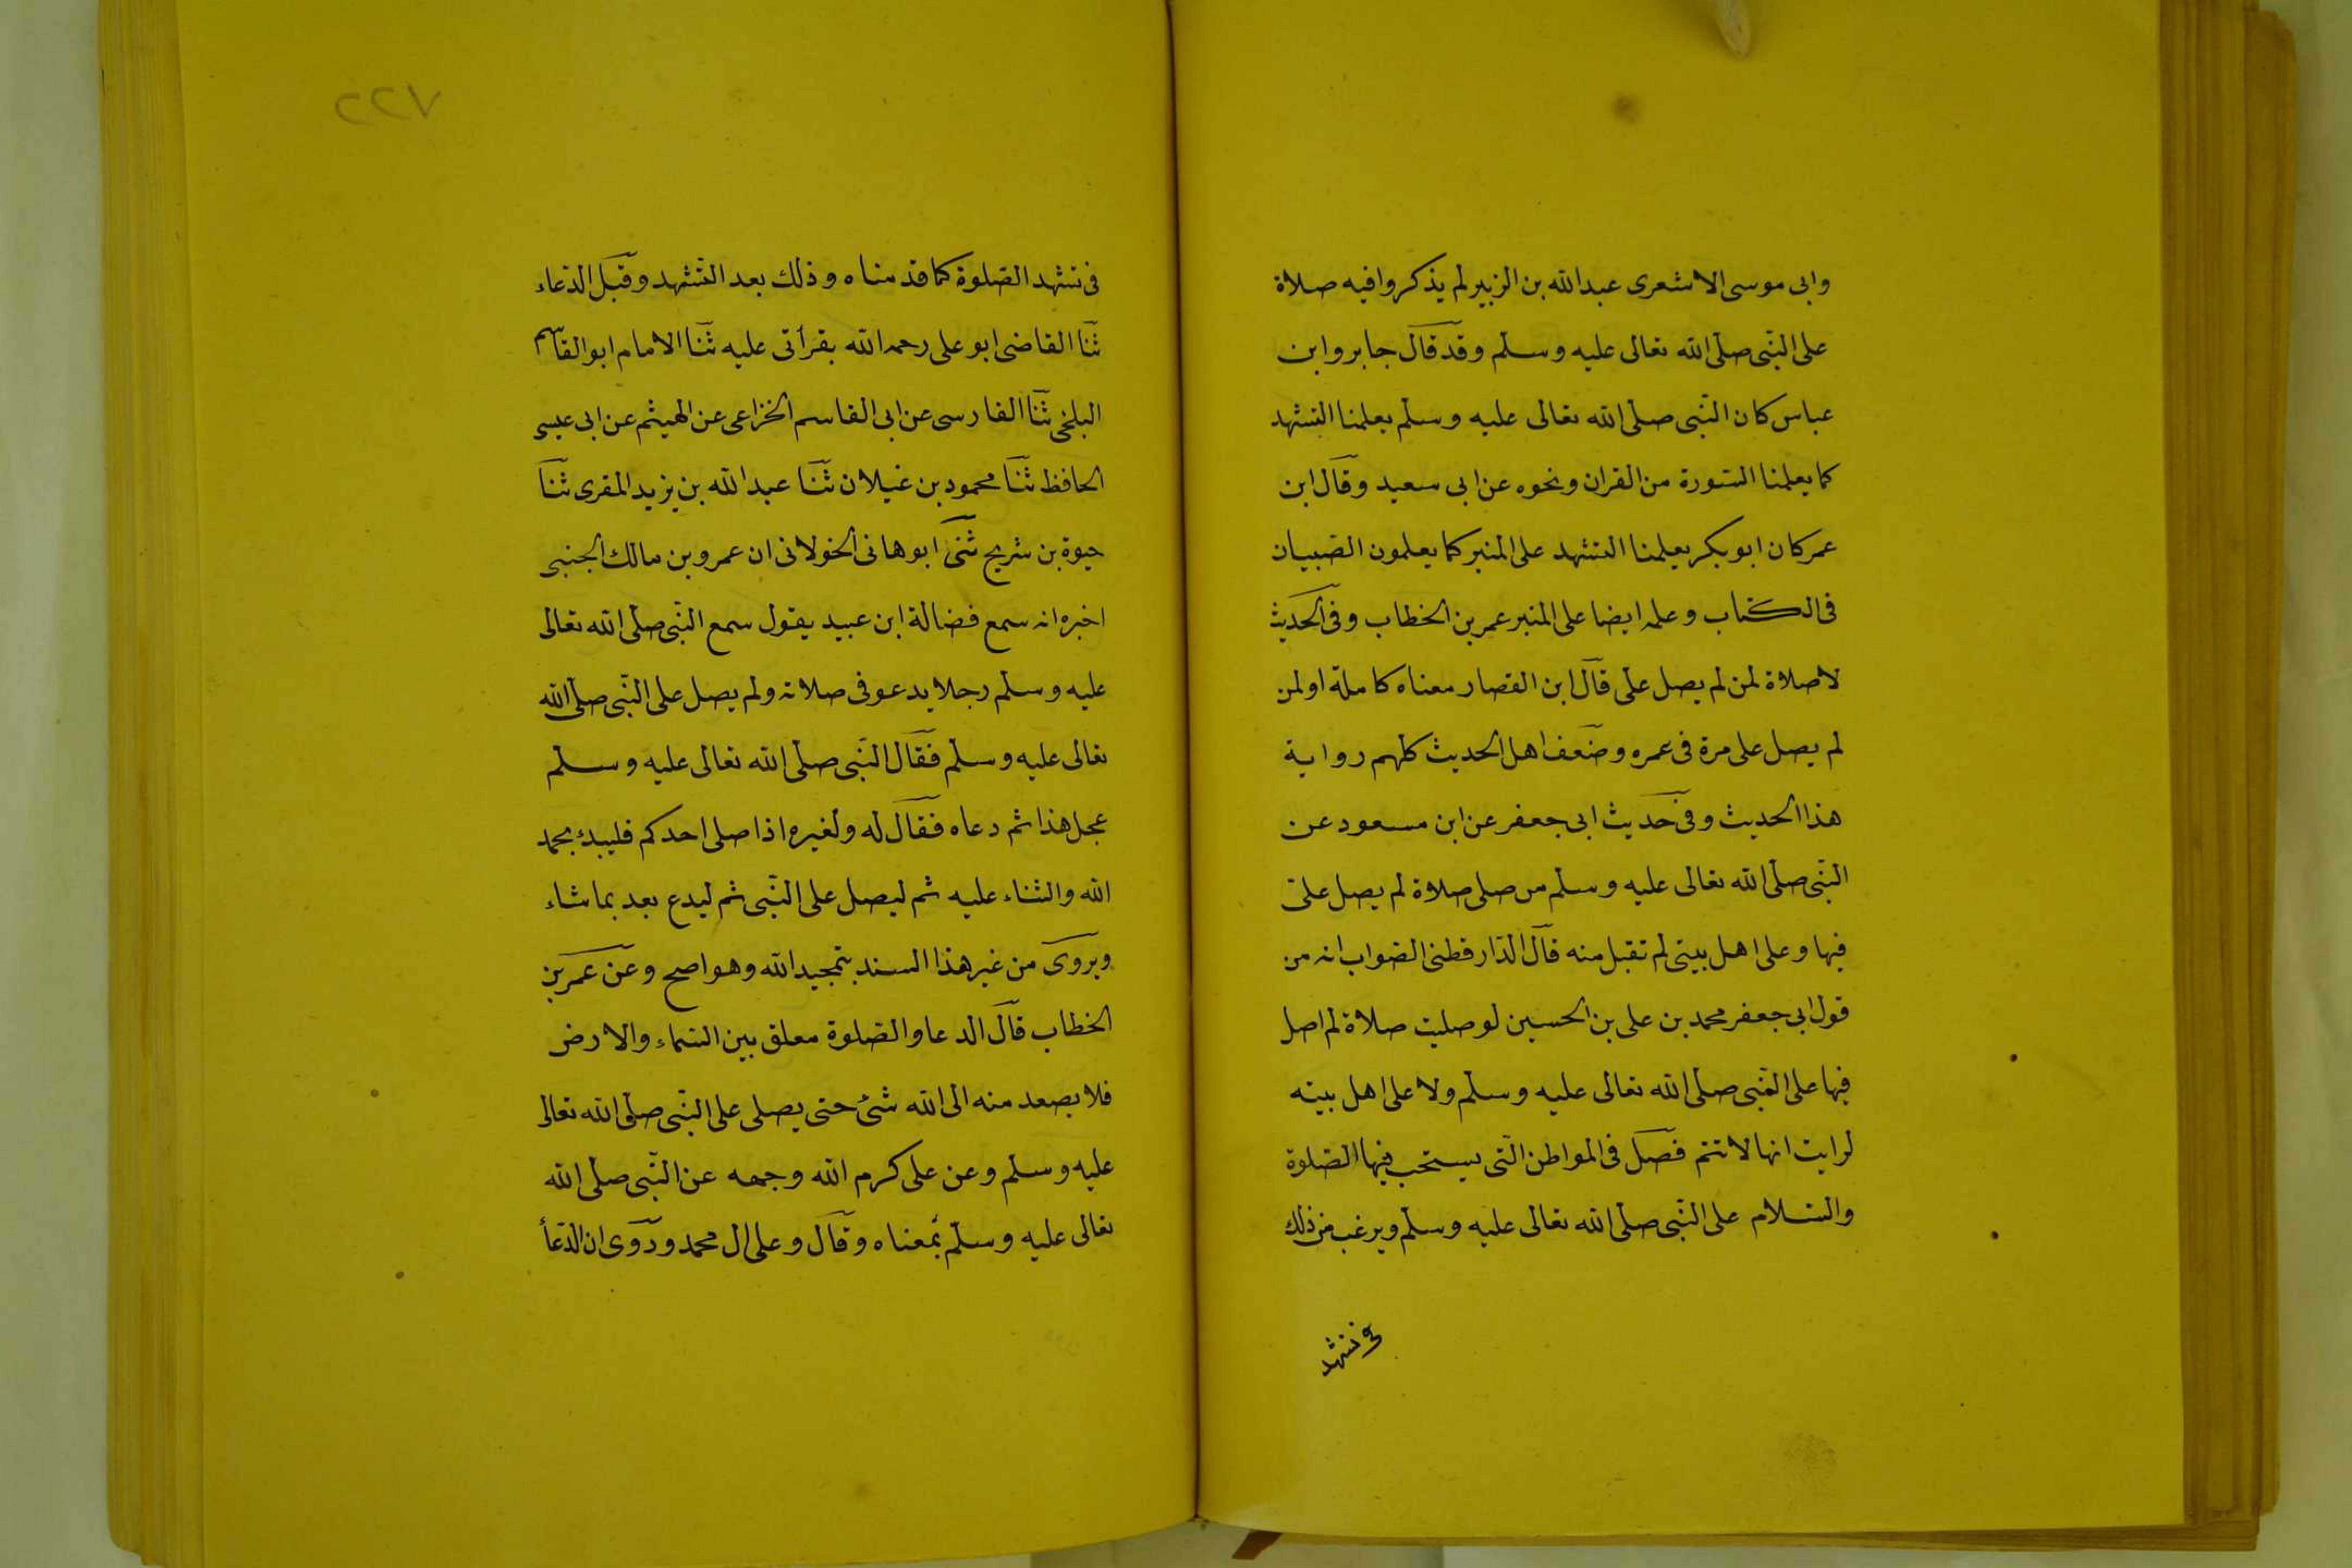 وابى موسى الاشعرى عبدالله بن الزبير لم يذكروا فيه صلاة
على النّبى صلى الله تعالى عليه وسلم وقد قال جابر وابن
عباس كان النّبى صلى الله تعالى عليه وسلم يعلمنا التشهد
كما يعلمنا السّورة من القران ونحوه عن ابى سعيد وقال ابن
عمر كان ابو بكر يعلمنا التشهد على المنبر كما يعلمون الصّبيان
فى الكتاب وعلمه ايضا على المنبر عمر بن الخطاب وفى الحديث
لا صلاة لمن لم يصل على قال ابن القصار معناه كاملة او لمن
لم يصل على مرة فى عمره وضعف اهل الحديث كلهم رواية
هذا الحديث وفى حديث ابى جعفر عن ابن مسعود عن
النّبى صلى الله تعالى عليه وسلم من صلى صلاة لم يصل علىّ
فيها وعلى اهل بيتى لم تقبل منه قال الدّار قطنى الصّواب انه من
قول ابى جعفر محمد بن على بن الحسين لو صليت صلاة لم اصل
فيها على النّبى صلى الله تعالى عليه وسلم ولا على اهل بيته
لرايت انها لا تتم فصل فى المواطن الّتى يستحب فيها الصّلوة
والسّلام على النّبى صلى الله تعالى عليه وسلم ويرغب من ذلك
فى تشهد
٧٢٢
فى تشهد الصّلوة كما قدمناه وذلك بعد التّشهد وقبل الدّعاء
ثنا القاضى ابو على رحمه الله بقرأتى عليه ثنا الامام ابو القاسم
البلخى ثنا الفارسى عن ابى القاسم الخزاعى عن الهيثم عن ابى عيسى
الحافظ ثنا محمود بن غيلان ثنا عبد الله بن يزيد المقرى ثنا
حيوة بن شريح ثنى ابو هانى الخولانى ان عمرو بن مالك الجنبى
اخبره انه سمع فضالة ابن عبيد يقول سمع النّبى صلى الله تعالى
عليه وسلم رجلا يدعو فى صلاته ولم يصل على النّبى صلى الله
تعالى عليه وسلم فقال النّبى صلى الله تعالى عليه وسلم
عجل هذا ثم دعاه فقال له ولغيره اذا صلى احدكم فليبدء بحمد
الله والثناء عليه ثم ليصل على النّبى ثم ليدع بعد بما شاء
ويروى من غير هذا السند بتمجيد الله وهو اصح وعن عمر بن
الخطاب قال الدعا والصّلوة معلق بين السّماء والارض
فلا يصعد منه الى الله شئ حتى يصلى على النّبى صلى الله تعالى
عليه وسلم وعن على كرم الله وجهه عن النّبى صلى الله
تعالى عليه وسلم بمعناه وقال وعلى ال محمد وروى ان الدّعأ